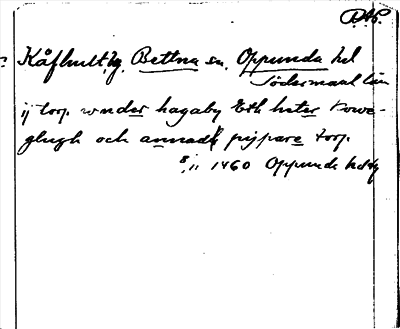 DAP.
Kåfhult, hg. Bettna sn. Oppunda hd
Södermanl. län
ij torp. wnder hagaby Eth heter kowa-
glugh och annadh pijpare torp.
8/11 1460 Oppunda hd